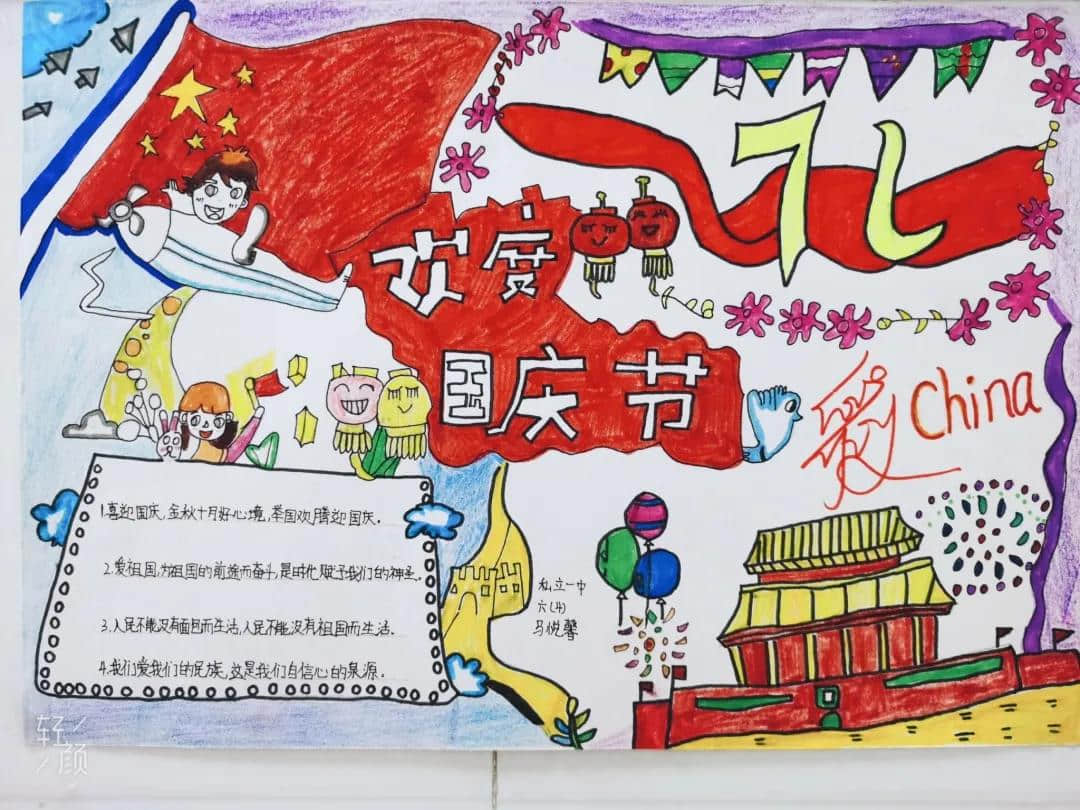 71
欢度
国庆节
爱China
1.喜迎国庆,金秋十月好心境,举国欢腾迎国庆.
2.爱祖国,为祖国的前途而奋斗,是时代赋予我们的神圣.
3.人民不能没有面包而生活,人民不能没有祖国而生活.
4.我们爱我们的民族,这是我们自信心的泉源.
私立一中
六(4)
马悦馨
轻颜